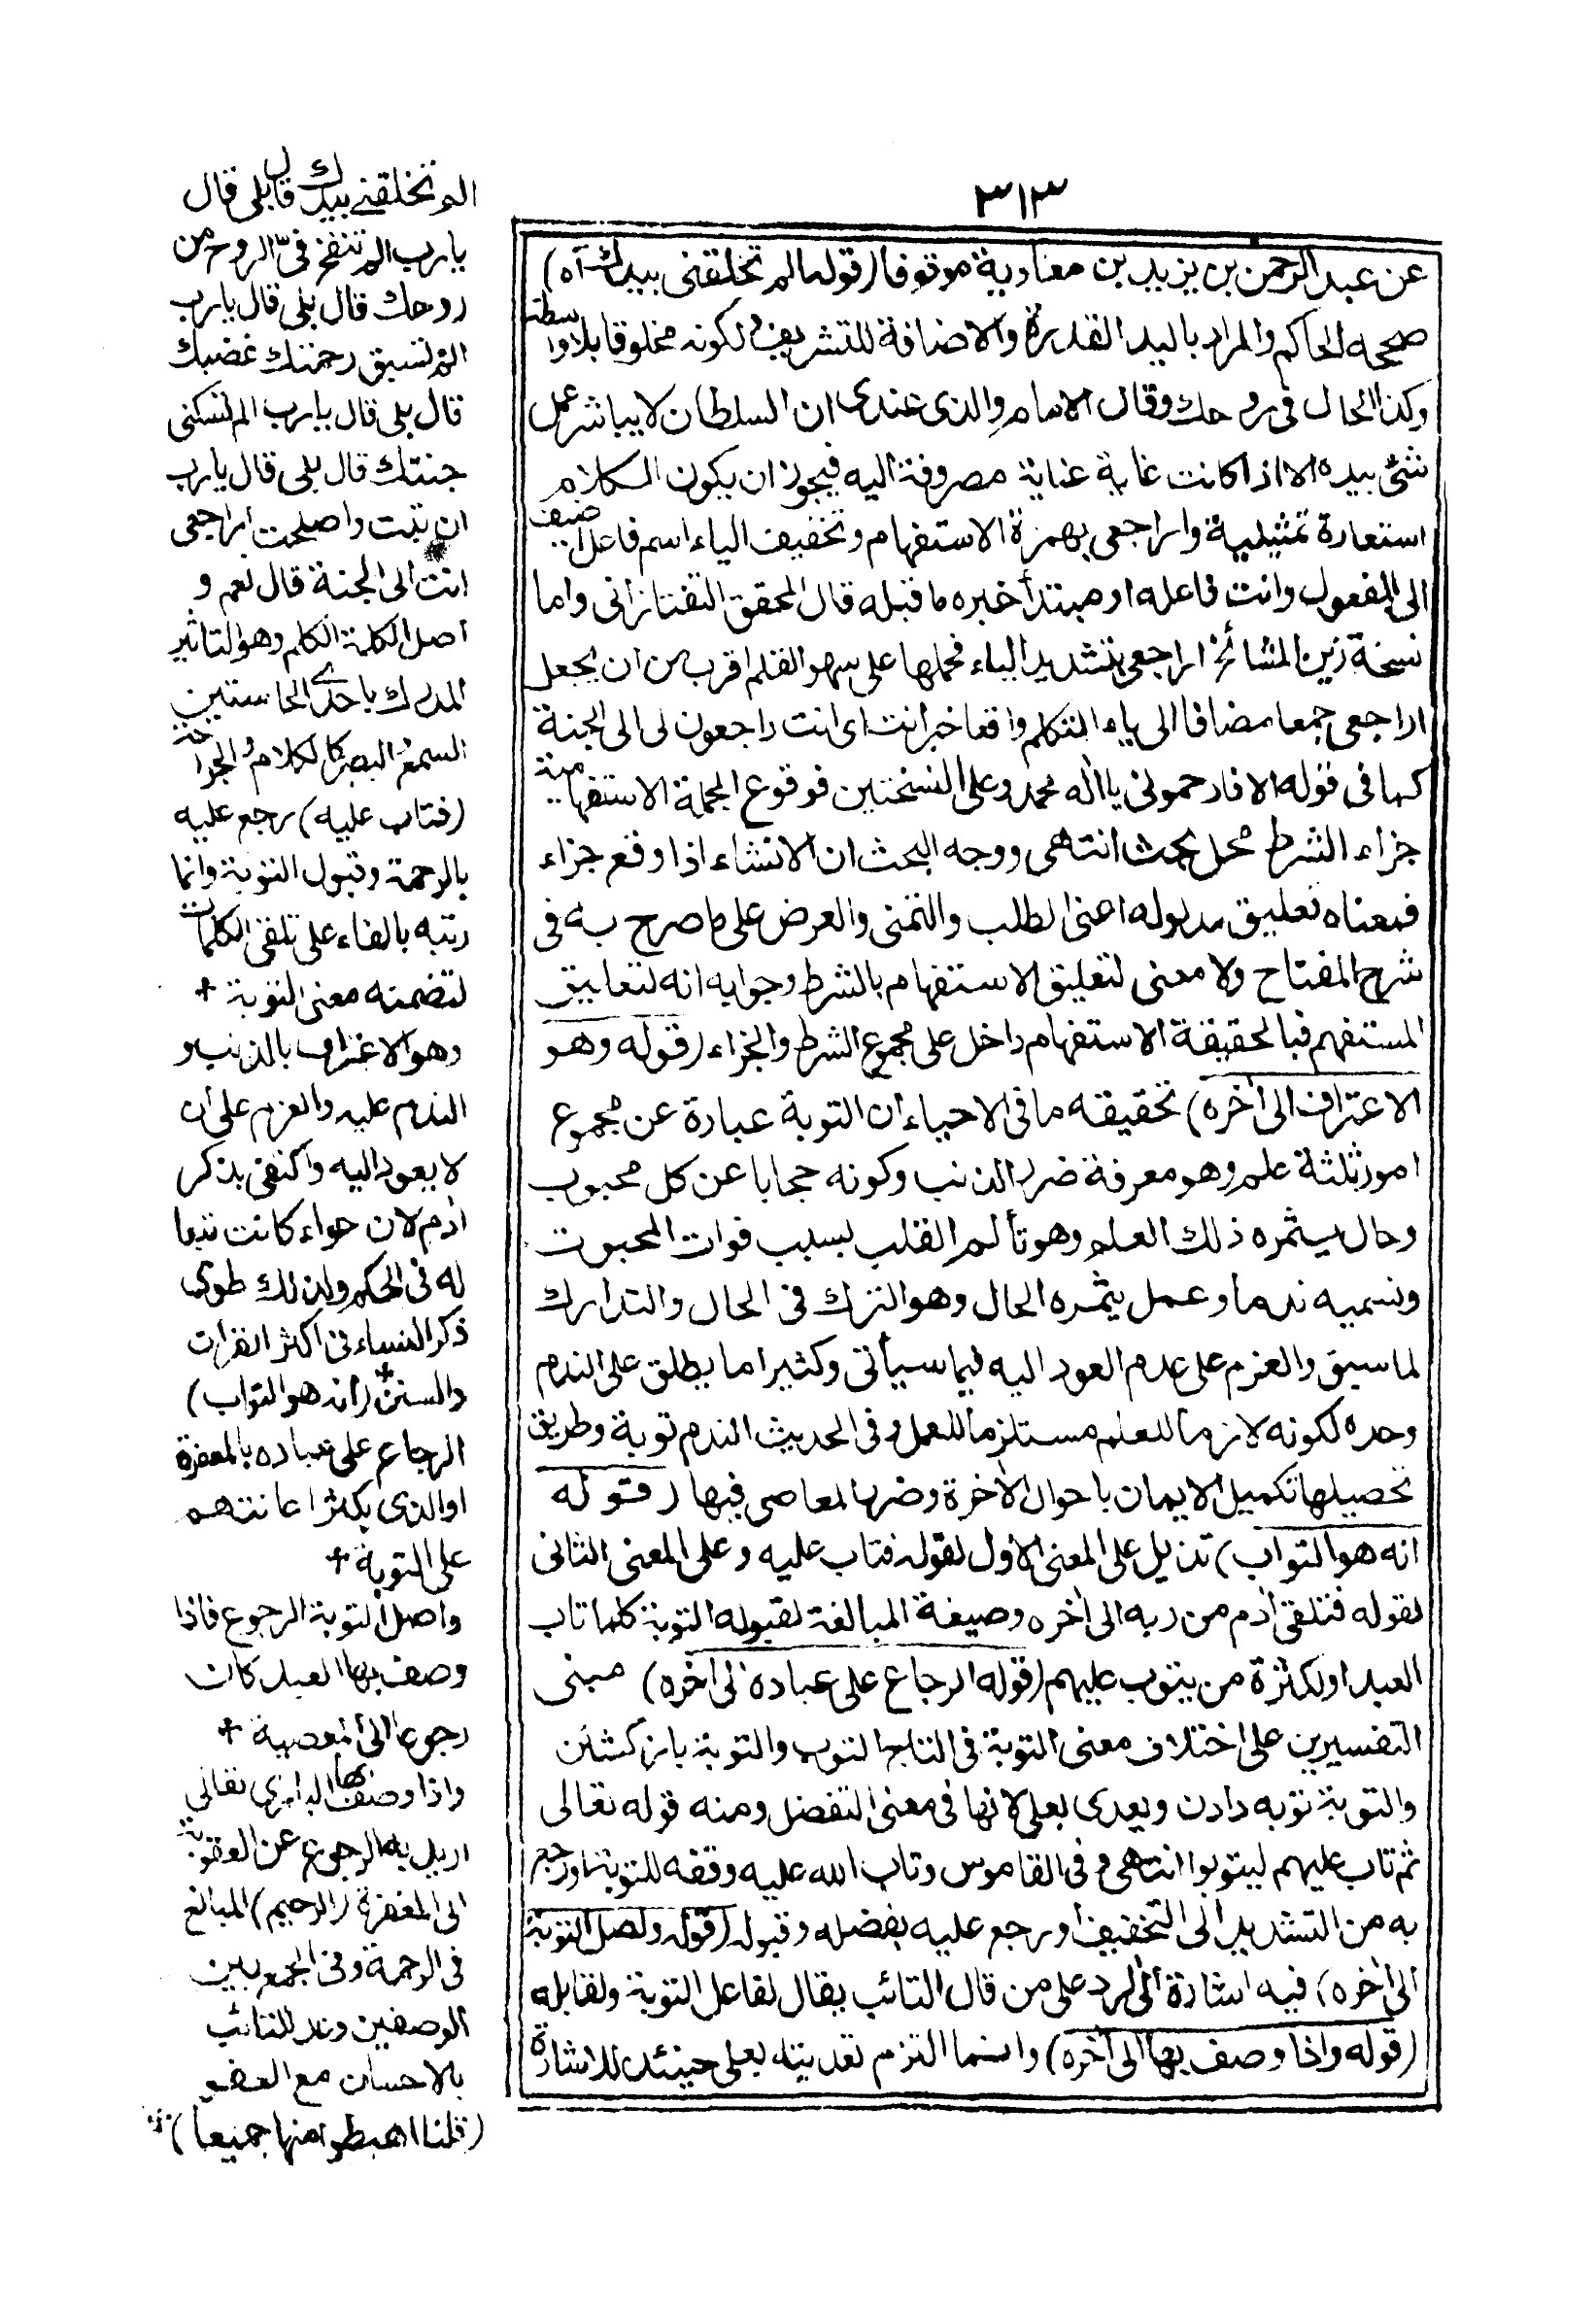 ٣١٣
عن عبد الرحمن بن يزيد بن معاوية موقوفا (قوله الم تخلقنى بيدك آه)
صححه الحاكم والمراد باليد القدرة والاضافة للتشريف لكونه مخلوقا بلا واسطة
وكذا الحال فى روحك وقال الامام والذى عندى ان السلطان لا يباشر عمل
شئ بيده الا اذا كانت غاية عناية مصروفة اليه فيجوز ان يكون الكلام
استعارة تمثيلية واراجعى بهمزة الاستفهام وتخفيف الياء اسم فاعل اضيف
الى المفعول وانت فاعله او مبتدأ خبره ما قبله قال المحقق التفتازانى واما
نسخة زين المشائخ اراجعى بتشديد الياء فحملها على سهو القلم اقرب من ان يجعل
اراجعى جمعا مضافا الى ياء المتكلم واقعا خبر انت اى انت راجعون لى الى الجنة
كما فى قوله الا فارحمونى يا اله محمد وعلى النسختين فوقوع الجملة الاستفهامية
جزاء الشرط محل بحث انتهى ووجه البحث ان الانشاء اذا وقع جزاء
فمعناه تعليق مدلوله اعنى الطلب والتمنى والعرض على ما صرح به فى
شرح المفتاح ولا معنى لتعليق الاستفهام بالشرط وجوابه انه لتعليق
المستفهم فبالحقيقة الاستفهام داخل على مجموع الشرط والجزاء (قوله وهو
الاعتراف الى آخره) تحقيقه ما فى الاحياء ان التوبة عبارة عن مجموع
امور ثلثة علم وهو معرفة ضرر الذنب وكونه حجابا عن كل محبوب
وحال يثمره ذلك العلم وهو تألم القلب بسبب فوات المحبوب
ونسميه ندما وعمل يثمره الحال وهو الترك فى الحال والتدارك
لما سبق والعزم على عدم العود اليه فيما سيأتى وكثيرا ما يطلق على الندم
وحده لكونه لازما للعلم مستلزما للعمل وفى الحديث الندم توبة وطريق
تحصيلها تكميل الايمان باحوال الآخرة وضرر المعاصى فيها (قوله
انه هو التواب) تذييل على المعنى الاول لقوله فتاب عليه وعلى المعنى الثانى
لقوله فتلقى آدم من ربه الى آخره وصيغة المبالغة لقبوله التوبة كلما تاب
العبد او لكثرة من يتوب عليهم (قوله الرجاع على عباده الى آخره) مبنى
التفسيرين على اختلاف معنى التوبة فى التاج التوب والتوبة باز كشتن
والتوبة توبه دادن ويعدى بعلى لانها فى معنى التفضل ومنه قوله تعالى
ثم تاب عليهم ليتوبوا انتهى وفى القاموس وتاب الله عليه وفقه للتوبة او رجع
به من التشديد الى التخفيف او رجع عليه بفضله وقبوله (قوله واصل التوبة
الى آخره) فيه اشارة الى الرد على من قال التائب يقال لفاعل التوبة ولقابله
(قوله واذا وصف بها الى آخره) وانما التزم تعديته بعلى حينئذ للاشارة
الم تخلقنى بيدك قال بلى قال
يارب الم تنفخ فىّ الروح من
روحك قال بلى قال يارب
الم تسبق رحمتك غضبك
قال بلى قال يارب الم تسكنى
جنتك قال بلى قال يارب
ان تبت واصلحت اراجعى
انت الى الجنة قال نعم و
اصل الكلمة الكلم وهو التاثير
المدرك باحدى الحاستين
السمع والبصر كالكلام والجراحة
(فتاب عليه) رجع عليه
بالرحمة وقبول التوبة وانما
رتبه بالفاء على تلقى الكلمات
لتضمنه معنى التوبة +
وهو الاعتراف بالذنب و
الندم عليه والعزم على ان
لا يعود اليه واكتفى بذكر
آدم لان حواء كانت تبعا
له فى الحكم ولذلك طوى
ذكر النساء فى اكثر القرآن
والسنن + (انه هو التواب)
الرجاع على عباده بالمغفرة
او الذى يكثر اعانتهم
على التوبة +
واصل التوبة الرجوع فاذا
وصف بها العبد كان
رجوعا الى المعصية +
واذا وصف بها البارى تعالى
اريد به الرجوع عن العقوبة
الى المغفرة (الرحيم) المبالغ
فى الرحمة وفى الجمع بين
الوصفين وعد للتائب
بالاحسان مع العفو
(قلنا اهبطوا منها جميعا)